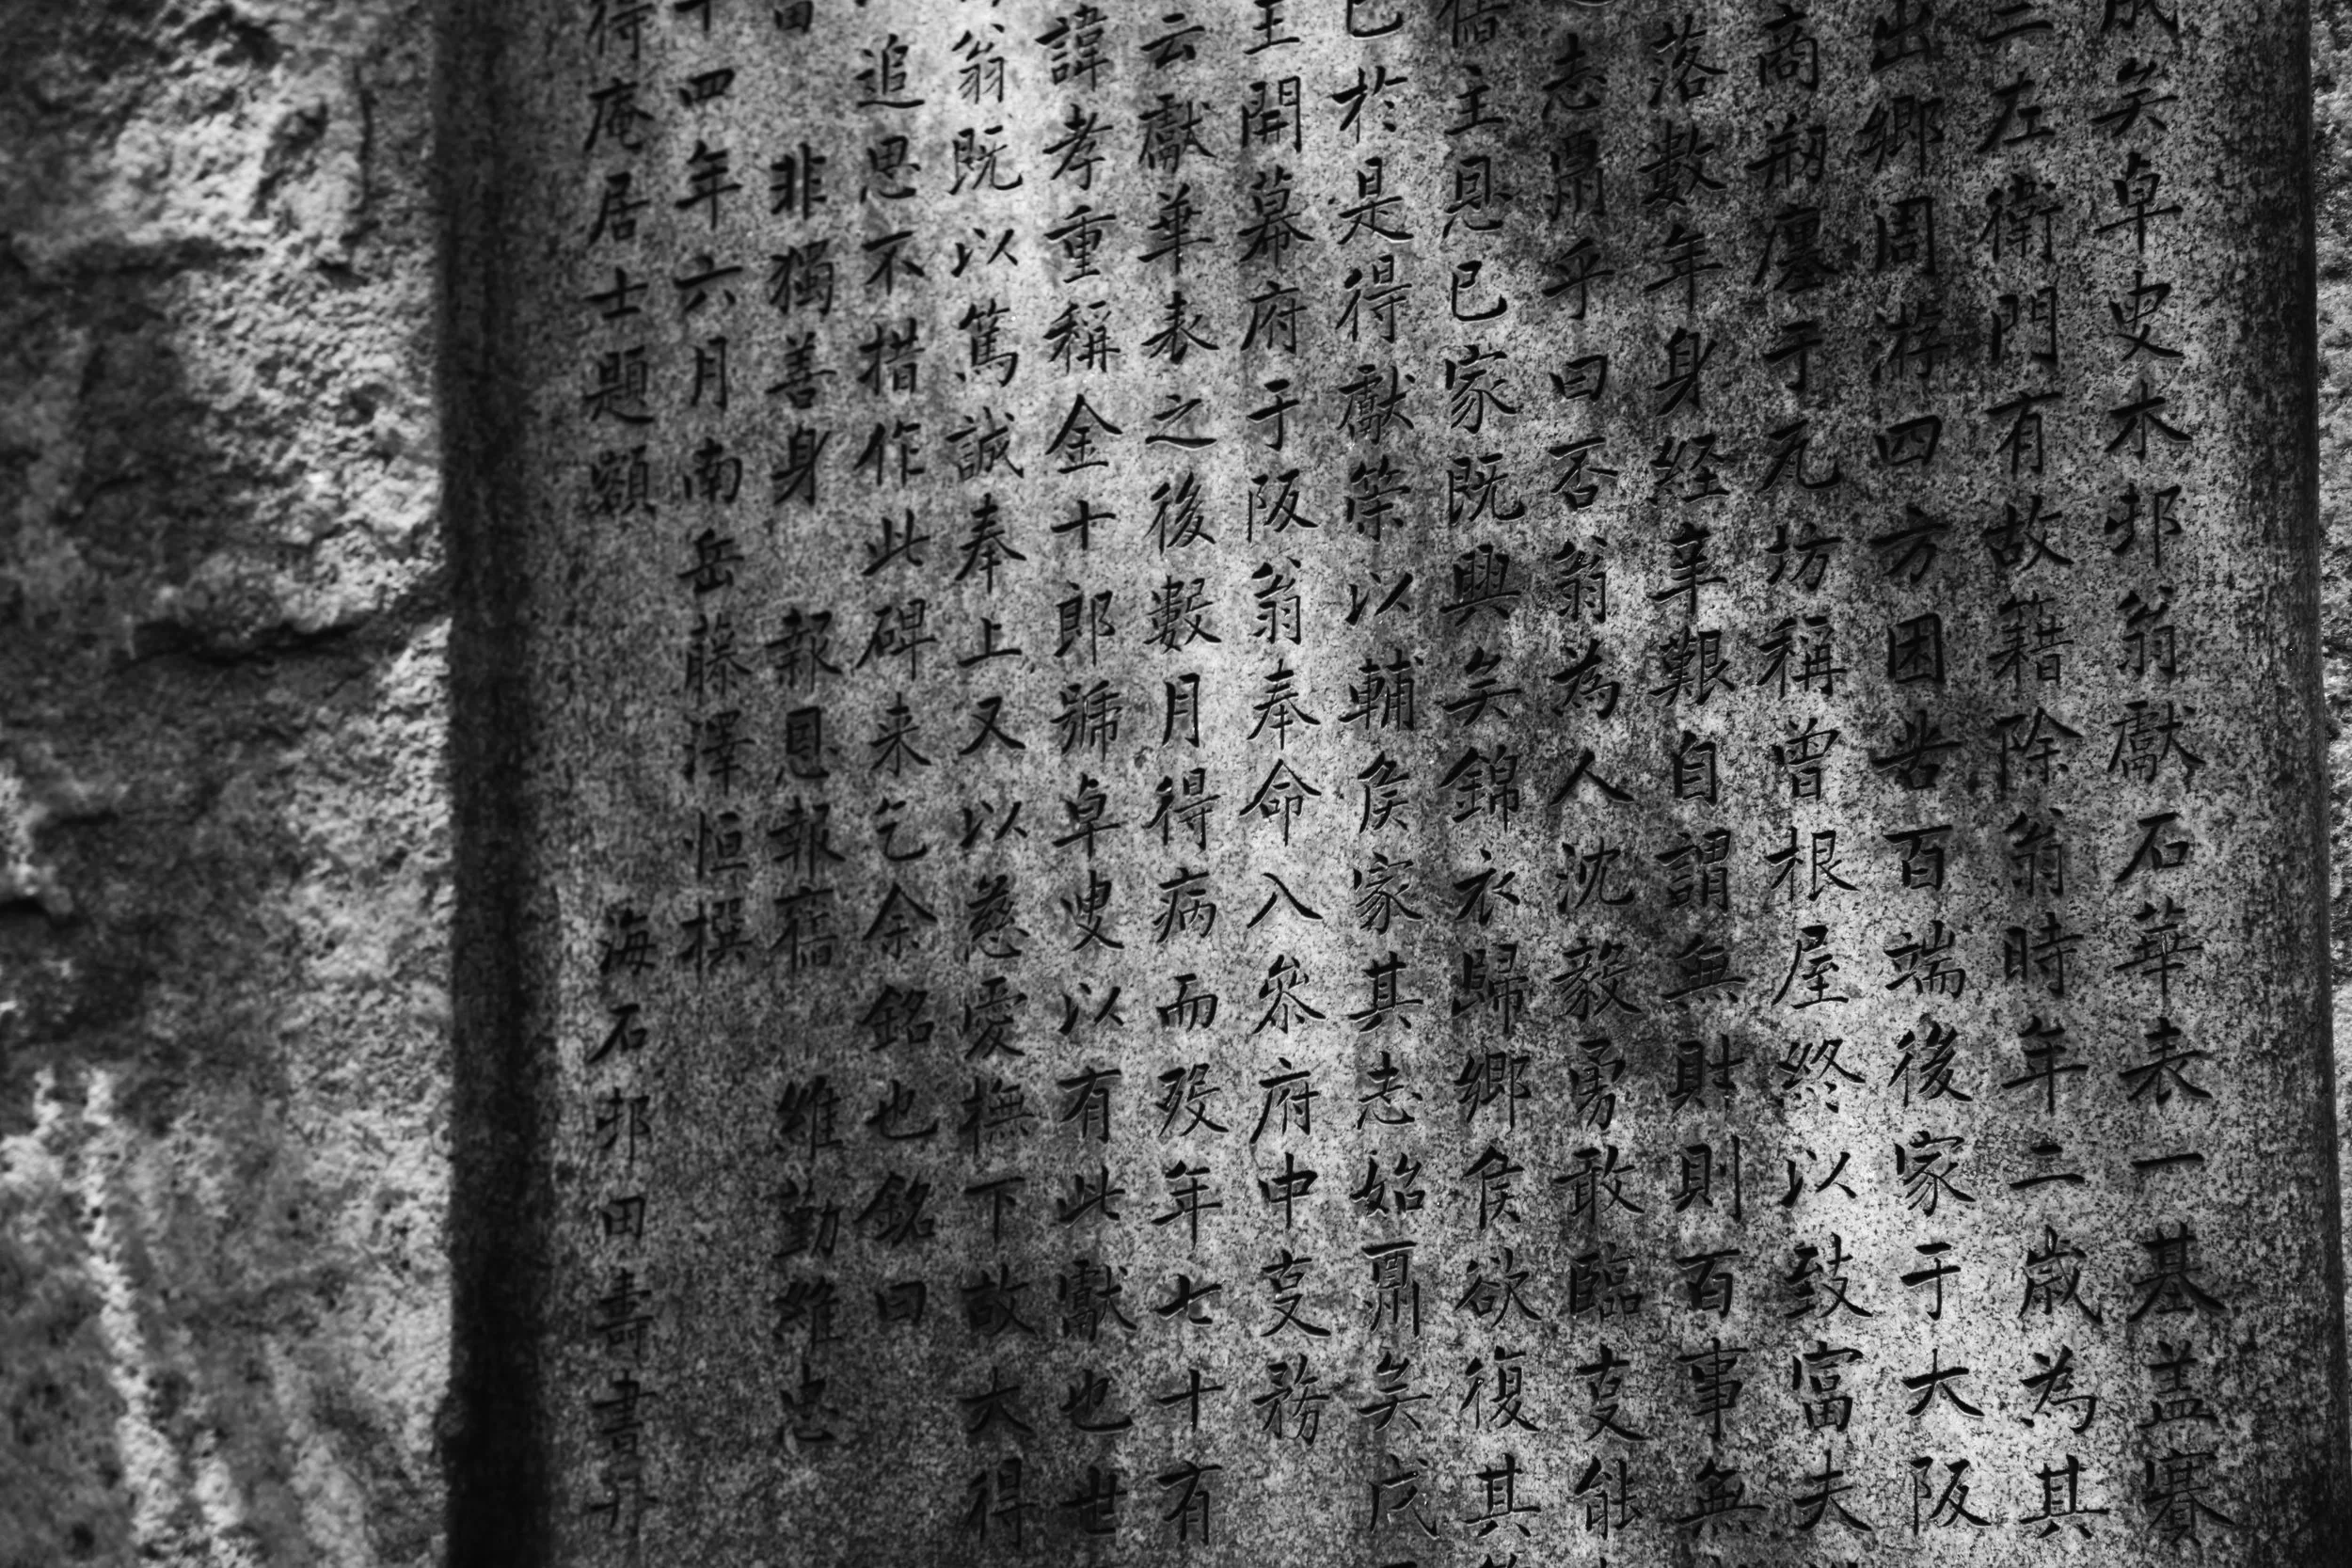 矣卓叟木邨翁獻石華表一基盖
二左衛門有故籍除翁時年二歳為其
出鄉周游四方困苦百端後家于大阪
商剏廛于元坊稱曽根屋終以致富夫
落數年身経辛艱自謂無財則百事無
志鼎乎曰否翁為人沈毅勇敢臨叓能
主恩已家既興矣錦衣歸鄉侯欲復其
已於是得獻策以輔侯家其志始鼎矣戊
主開幕府于阪翁奉命入參府中叓務
云獻華表之後數月得病而歿年七十有
諱孝重稱金十郎號卓叟以有此獻也世
翁既以篤誠奉上又以慈愛撫下故大得
追思不措作此碑来乞余銘也銘曰
非獨善身 報恩報 維勤維忠
十四年六月南岳藤澤恒撰
得庵居士題顕 海石邨田壽書